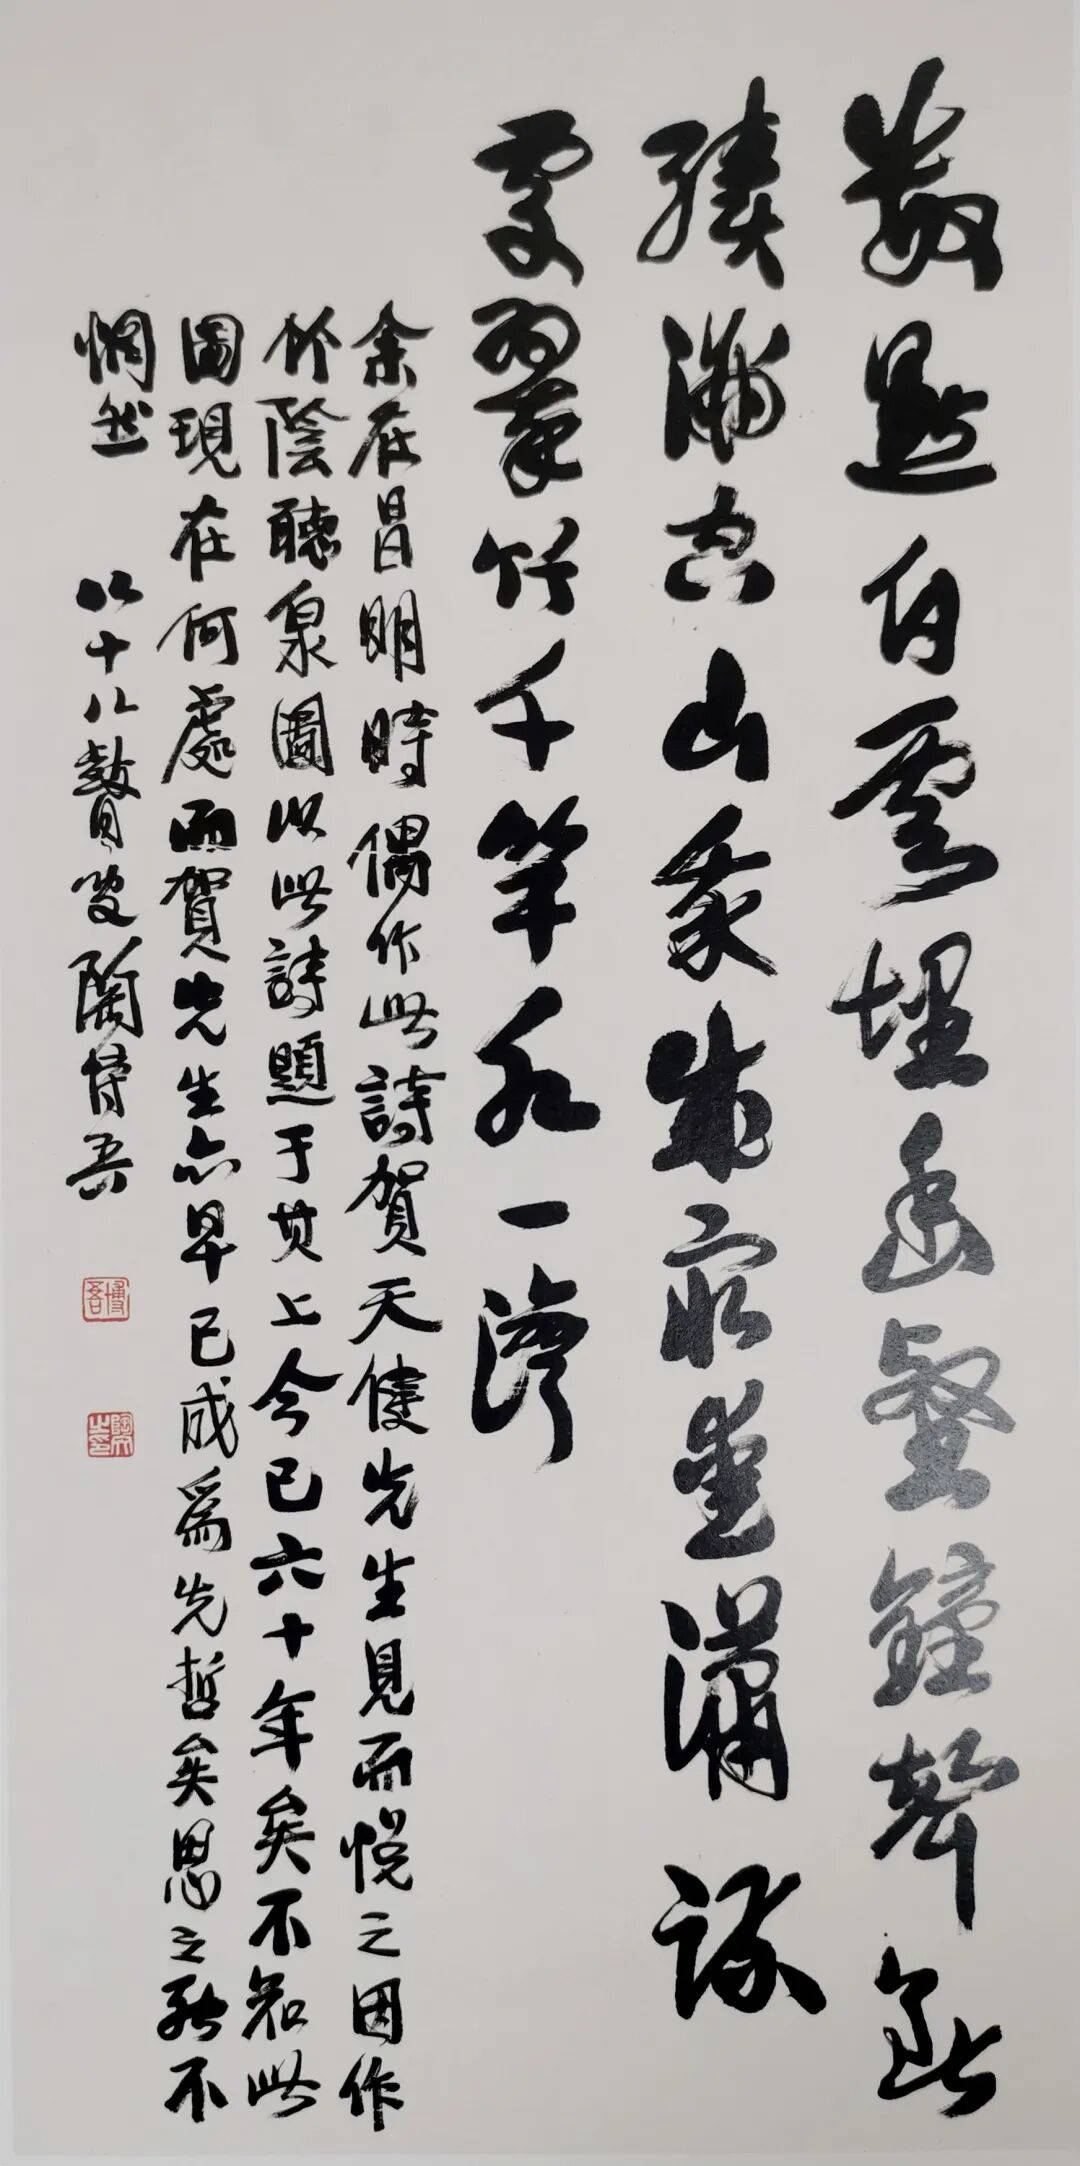 數點白雲埋幽壑鐘聲斷
續滿空山我來最愛瀟疎
處翠竹千竿水一灣
余在昌明時偶作此詩賀天健先生見而悅之因作
竹陰聽泉圖以此詩題于其上今已六十年矣不知此
圖現在何處而賀先生亦早已成爲先哲矣思之能不
惘然 八十八瞽叟陶博吾
博吾